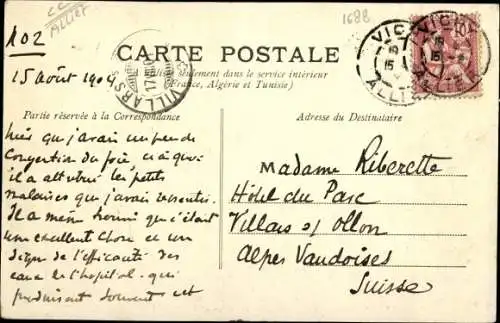 cc
ALLIER
1688
102
15 Août 1904
CARTE POSTALE
seulement dans le service intérieur
(France, Algérie et Tunisie)
VICHY
ALLIER
VILLARS
10
Partie réservée à la Correspondance
Adresse du Destinataire
que j'avais un peu de
Congestion du foie, ce à quoi
il a attribué les petits
malaises que j'avais ressentis.
Il a même que c'était
une excellente chose et un
signe de l'efficacité des
eaux de l'hôpital qui
produisent souvent cet
Madame Riberette
Hôtel du Parc
Villars s/ Ollon
Alpes Vaudoises
Suisse